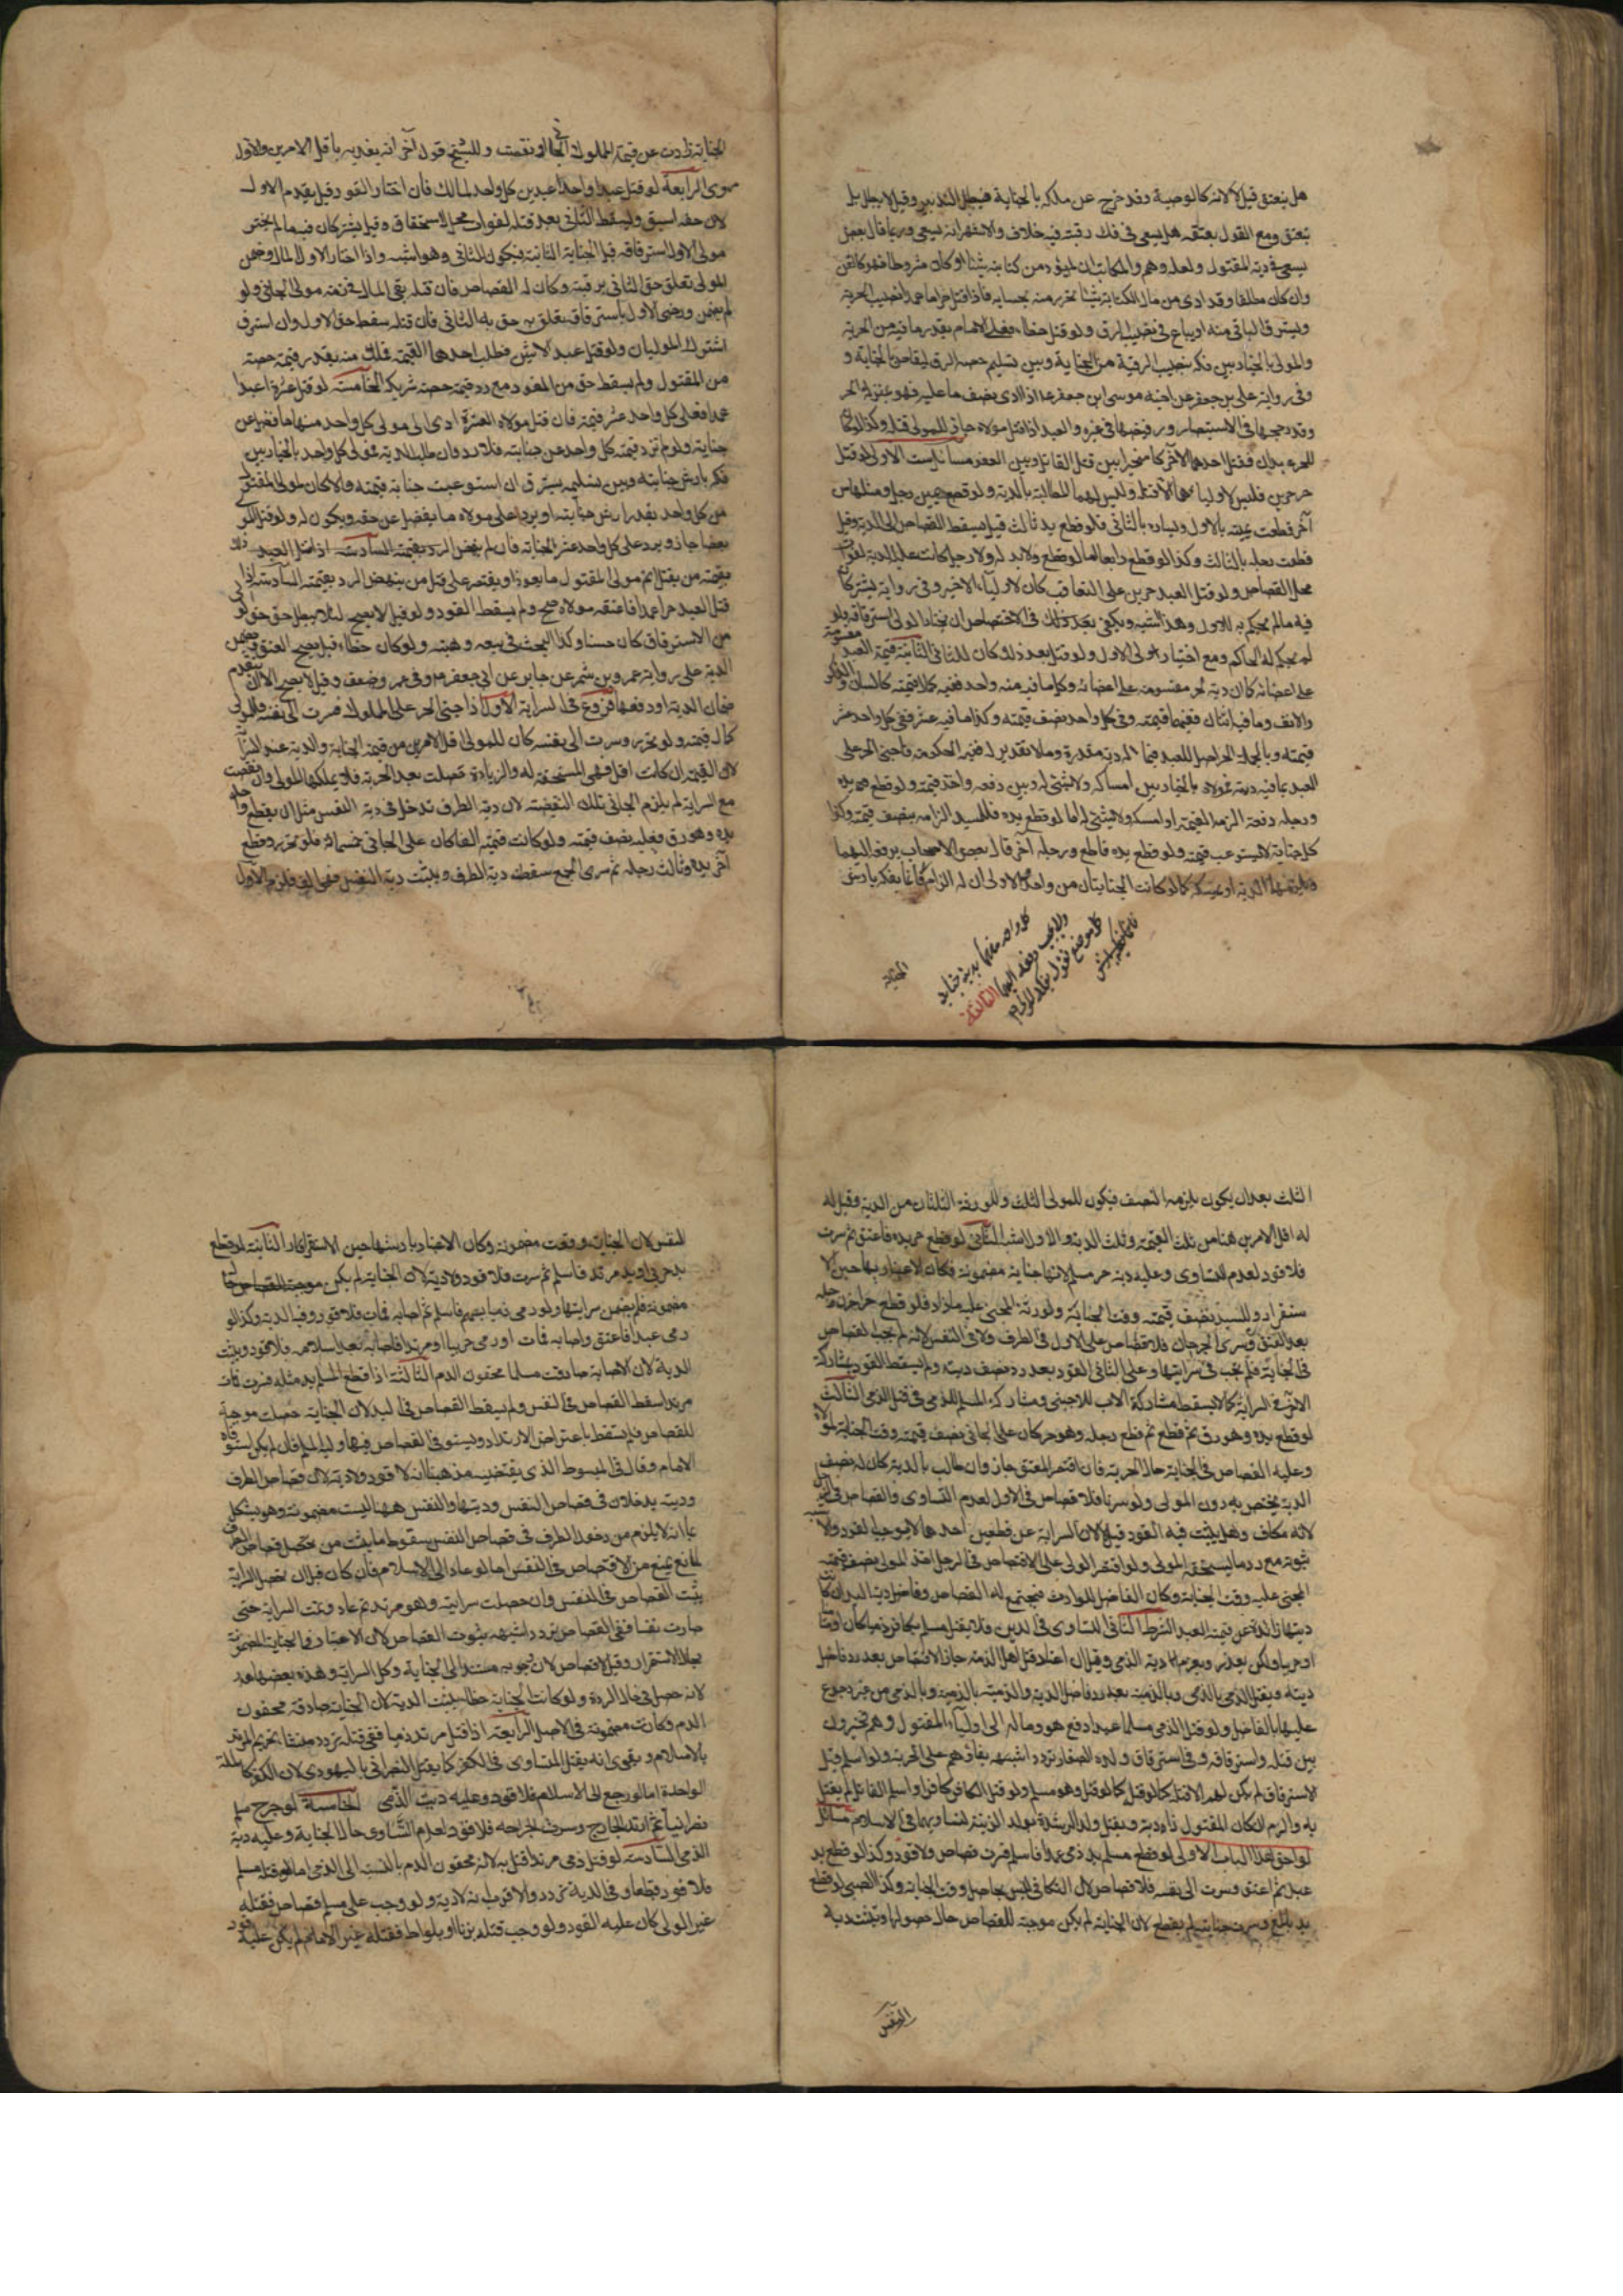 هل ينعتق قيل لا لانه كالوصية وقد خرج عن ملكه بالجناية فيبطل التدبير وقيل لا يبطل بل
ينعتق ومع القول بعتقه هل يسعى في فك رقبته فيه خلاف والاشهر انه يسعى وربما قال بعض
يسعى في دية المقتول ولعله وهم والمكاتب ان لم يؤد من كتابته شيئا او كان مشروطا فهو كالقن
وان كان مطلقا وقد ادى من مال الكتابة شيئا تحرر منه بحسابه فاذا قتل حرا عمدا
ويسترق الباقي منه او يباع في نصيب الرق ولو قتل خطاء فعلى الامام بقدر ما فيه من الحرية
والمولى بالخيار بين فكه بنصيب الرقية من الجناية وبين تسليم حصة الرق ليقاص بالجناية و
في رواية علي بن جعفر عن اخيه موسى ابن جعفر ع اذا ادى نصف ما عليه فهو بمنزلة الحر
وقد رجحها في الاستبصار ورفضها في غيره والعبد اذا قتل مولاه جاز للمولى قتله وكذا لو كان
للحر عبدان فقتل احدهما الآخر كان مخيرا بين قتل القاتل وبين العفو مسائل ست الاولى لو قتل
حر حرين فليس لاوليائهما الا قتله وليس لهما المطالبة بالدية ولو قطع يمين رجل ومثلها من
آخر قطعت يمينه بالاول ويساره بالثاني فلو قطع يد ثالث قيل يسقط القصاص الى الدية وقيل
قطعت رجله بالثالث وكذا لو قطع رابعا اما لو قطع ولا يد له ولا رجل كانت عليه الدية لفوات
محل القصاص ولو قتل العبد حرين على التعاقب كان لاولياء الاخير وفي رواية يشتركان
فيه ما لم يحكم به للاول وهذا اشبه ويكفي بعد ذلك في الاختصاص ان يختار الولي استرقاقه ولو
لم يحكم له الحاكم ومع اختيار ولي الاول لو قتل بعد ذلك كان للثاني الثانية قيمة العبد مقسومة
على اعضائه كما ان دية الحر مقسومة على اعضائه وكل ما فيه منه واحد ففيه كمال قيمته كاللسان والذكر
والانف وما فيه اثنان ففيهما قيمته وفي كل واحد نصف قيمته وكذا ما فيه عشر ففي كل واحد عشر
قيمته وبالجملة الحر اصل للعبد فيما له دية مقدرة وما لا تقدير له ففيه الحكومة فاذا جنى الحر على
العبد بما فيه ديته فمولاه بالخيار بين امساكه ولا شيء له وبين دفعه واخذ قيمته ولو قطع يده
ورجله دفعة الزمه القيمة او امسكه ولا شيء له اما لو قطع يده فللسيد الزامه بنصف قيمته وكذا
كل جناية لا تستوعب قيمته ولو قطع يده قاطع ورجله آخر قال بعض الاصحاب يدفعه اليهما
ويلزمهما الدية او يمسكه كما لو كانت الجنايتان من واحد والاولى ان له الزام
كل واحد منهما بدية جنايته
ولا يجب دفعه اليهما الثالثة
كل موضع نقول يفكه المولى
فانما يفكه بارش
الجناية
الجناية زادت عن قيمة المملوك الجاني او نقصت وللشيخ قول آخر انه يفديه باقل الامرين والاول
مروي الرابعة لو قتل عبد واحد عبدين كل واحد لمالك فان اختار القود قيل يقدم الاول
لان حقه اسبق ويسقط الثاني بعد قتله لفوات محل الاستحقاق وقيل يشتركان فيه ما لم يختر
مولى الاول استرقاقه قبل الجناية الثانية فيكون للثاني وهو اشبه واذا اختار الاول المال وضمن
المولى تعلق حق الثاني برقبته وكان له القصاص فان قتله بقي المال في ذمة مولى الجاني ولو
لم يضمن ورضي الاول باسترقاقه تعلق به حق الثاني فان قتله سقط حق الاول وان استرق
اشترك الموليان ولو قتل عبد الاثنين فطلب احدهما القيمة ملك منه بقدر قيمة حصته
من المقتول ولم يسقط حق من القود مع رد قيمة حصة شريكه الخامسة لو قتل عشرة اعبد عبدا
عمدا فعلى كل واحد عشر قيمته فان قتل مولاه العشرة ادى الى مولى كل واحد منهم ما فضل عن
جنايته ولو لم تزد قيمة كل واحد عن جنايته فلا رد وان طلب الدية فمولى كل واحد بالخيار بين
فكه بارش جنايته وبين تسليمه يسترق ان استوعبت جنايته قيمته والا كان لمولى المقتول
من كل واحد بقدر ارش جنايته او يرد على مولاه ما يفضل عن حقه ويكون له ولو قتل المولى
بعضا جاز ويرد على كل واحد عشر الجناية فان لم ينهض الرد بقيمة
بقيمة من يقتل اتم مولى المقتول ما يعوز او يقتصر على قتل من ينهض الرد بقيمته السادسة اذا
قتل العبد حرا عمدا فاعتقه مولاه صح ولم يسقط القود ولو قيل لا يصح لئلا يبطل حق الولي
من الاسترقاق كان حسنا وكذا البحث في بيعه وهبته ولو كان خطاء قيل يصح العتق ويضمن
الدية على رواية عمرو بن شمر عن جابر عن ابي جعفر ع وفي عمرو ضعف وقيل لا يصح الا ان يتقدم
ضمان الدية او دفعها فروع في السراية الاول اذا جنى الحر على المملوك فسرت الى نفسه فللمولى
كمال قيمته ولو تحرر وسرت الى نفسه كان للمولى اقل الامرين من قيمة الجناية والدية عند السراية
لان القيمة ان كانت اقل فهي المستحقة له والزيادة حصلت بعد الحرية فلا يملكها المولى وان نقصت
مع السراية لم يلزم الجاني تلك النقيصة لان دية الطرف تدخل في دية النفس مثل ان يقطع واحد
يده وهو رق فعليه نصف قيمته ولو كانت قيمته الفا كان على الجاني خمسمائة فلو تحرر وقطع
آخر يده وثالث رجله ثم سرى الجميع سقطت دية الطرف وثبتت دية النفس فلزم الاول
الثلث بعد ان كان يلزمه النصف فيكون للمولى الثلث وللورثة الثلثان من الدية وقيل له
له اقل الامرين هنا من ثلث القيمة وثلث الدية والاول اشبه الثاني لو قطع حر يده فاعتق ثم سرت
فلا قود لعدم التساوي وعليه دية حر مسلم لانها جناية مضمونة فكان الاعتبار بها حين الا
ستقرار وللسيد نصف قيمته وقت الجناية ولورثة المجني عليه ما زاد فلو قطع حر آخر رجله
بعد العتق وسرى الجرحان فلا قصاص على الاول في الطرف ولا في النفس لانه لم يجب القصاص
في الجناية فلم يجب في سرايتها وعلى الثاني القود بعد رد نصف ديته ولم يسقط القود بمشاركة
الآخر في السراية كما لا يسقط بمشاركة الاب للاجنبي ومشاركة المسلم للذمي في قتل الذمي الثالث
لو قطع يده وهو رق ثم قطع رجله وهو حر كان على الجاني نصف قيمته وقت الجناية لمولاه
وعليه القصاص في الجناية حال الحرية فان اقتص المعتق جاز وان طالب بالدية كان له نصف
الدية يختص به دون المولى ولو سرتا فلا قصاص في الاول لعدم التساوي وللقصاص في الرجل
لانه مكاف وهل يثبت فيه القود قيل لا لان السراية عن قطعين احدهما لا يوجب القود والاشبه
ثبوته مع رد ما يستحقه المولى ولو اقتصر الولي على الاقتصاص في الرجل اخذ المولى نصف قيمة
المجني عليه وقت الجناية وكان الفاضل للوارث فيجتمع له القصاص وفاضل دية اليد ان كانت
ديتها زائدة عن قيمة العبد الشرط الثاني التساوي في الدين فلا يقتل مسلم بكافر ذميا كان او مستامنا
او حربيا ولكن يعزر ويغرم دية الذمي وقيل ان اعتاد قتل اهل الذمة جاز الاقتصاص بعد رد فاضل
ديته ويقتل الذمي بالذمي وبالذمية بعد رد فاضل الدية والذمية بالذمية وبالذمي من غير رجوع
عليها بالفاضل ولو قتل الذمي مسلما عمدا دفع هو وماله الى اولياء المقتول وهم مخيرون
بين قتله واسترقاقه وفي استرقاق ولده الصغار تردد اشبهه بقاؤهم على الحرية ولو اسلم قبل
الاسترقاق لم يكن لهم الا قتله كما لو قتل وهو مسلم ولو قتل الكافر كافرا واسلم القاتل لم يقتل
به والزم الدية ان كان المقتول ذا دية ويقتل ولد الرشدة بولد الزنية لتساويهما في الاسلام مسائل
من لواحق هذا الباب الاولى لو قطع مسلم يد ذمي عمدا فاسلم فسرت فلا قصاص ولا قود وكذا لو قطع يد
عبد ثم اعتق وسرت الى نفسه فلا قصاص لان التكافي ليس بحاصل وقت الجناية وكذا الصبي لو قطع
يد بالغ وسرت جنايته لم يقطع لان الجناية لم يكن موجبة للقصاص حال حصولها وتثبت دية
النفس
النفس لان الجناية وقعت مضمونة وكان الاعتبار بارشها حين الاستقرار الثانية لو قطع
يد حربي او يد مرتد فاسلم ثم سرت فلا قود ولا دية لان الجناية لم يكن
مضمونة فلم يضمن سرايتها ولو رمى ذميا بسهم فاسلم ثم اصابه فمات فلا قود وفيه الدية وكذا لو
رمى عبدا فاعتق واصابه فمات او رمى حربيا او مرتدا فاصابه بعد اسلامه فلا قود ويثبت
الدية لان الاصابة صادفت مسلما محقون الدم الثالثة اذا قطع المسلم يد مثله فسرت فمات
مرتدا سقط القصاص في النفس ولم يسقط القصاص في اليد لان الجناية حصلت موجبة
للقصاص فلم يسقط باعتراض الارتداد ويستوفي القصاص فيها وليه المسلم فان لم يكن استوفاه
الامام وقال في المبسوط الذي يقتضيه مذهبنا انه لا قود ولا دية لان قصاص الطرف
وديته يدخلان في قصاص النفس وديتها والنفس ههنا ليست مضمونة وهو يشكل
بما انه لا يلزم من دخول الطرف في قصاص النفس سقوط ما يثبت من قصاص الطرف
لمانع يمنع من الاقتصاص في النفس اما لو عاد الى الاسلام فان كان قبل ان تحصل السراية
ثبت القصاص في النفس وان حصلت سراية وهو مرتد ثم عاد وتمت السراية حتى
صارت نفسا ففي القصاص تردد اشبهه ثبوت القصاص لان الاعتبار في الجناية المضمونة
بحال الاستقرار وقيل لا قصاص لان وجوبه مستند الى الجناية وكل السراية وهذه بعضها هدر
لانه حصل في حال الردة ولو كانت الجناية خطاء ثبتت الدية لان الجناية صادفت محقون
الدم وكانت مضمونة في الاصل الرابعة اذا قتل مرتد ذميا ففي قتله تردد منشاؤه تحرم المرتد
بالاسلام ويقوى انه يقتل للتساوي في الكفر كما يقتل النصراني باليهودي لان الكفر كالملة
الواحدة اما لو رجع الى الاسلام فلا قود وعليه دية الذمي الخامسة لو جرح مسلم
نصرانيا ثم ارتد الجارح وسرت الجراحة فلا قود لعدم التساوي حال الجناية وعليه دية
الذمي السادسة لو قتل ذمي مرتدا قتل به لانه محقون الدم بالنسبة الى الذمي اما لو قتله مسلم
فلا قود قطعا وفي الدية تردد والاقرب انه لا دية ولو وجب على مسلم قصاص فقتله
غير الولي كان عليه القود ولو وجب قتله بزنا او بلواط فقتله غير الامام لم يكن عليه قود